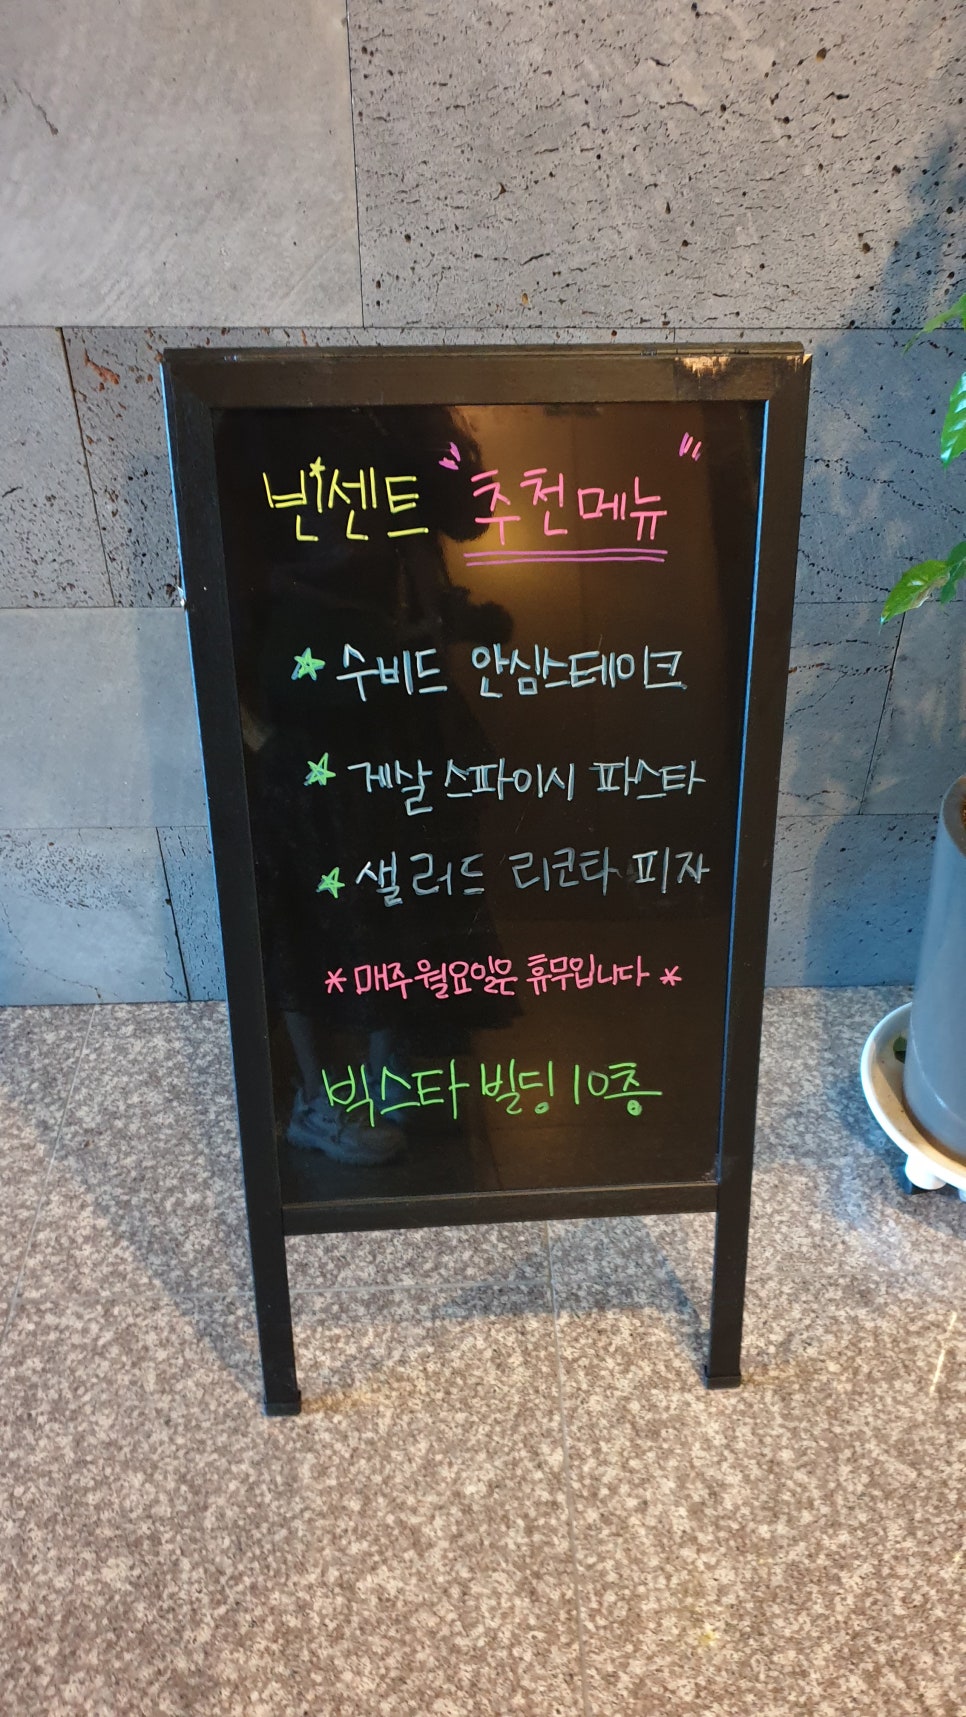 빈센트 "추천메뉴"
☆ 수비드 안심스테이크
☆ 게살 스파이시 파스타
☆ 샐러드 리코타 피자
* 매주 월요일은 휴무입니다 *
빅스타 빌딩 10층